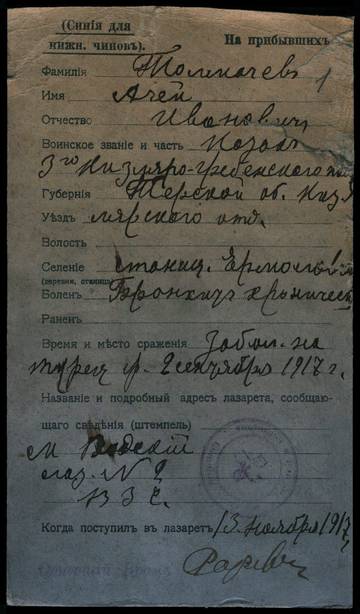 (Синія для
нижн. чиновъ).
На прибывшихъ
Фамилія Толмачевъ 1
Имя
Отчество Ивановичъ
Воинское званіе и часть Козакъ
3го Кизляро-Гребенского
Губернія Терской об. Киз
Уѣздъ лярского отд.
Волость
Селеніе станиц.
(деревня, станица)
Боленъ Бронхит хроническ
Раненъ
Время и мѣсто сраженія Забол. на
турец. ф. 2 сентября 1917 г.
Названіе и подробный адресъ лазарета, сообщаю-
щаго свѣдѣнія (штемпель)
лаз. №
В З С.
Когда поступилъ въ лазаретъ 15 ноября 1917